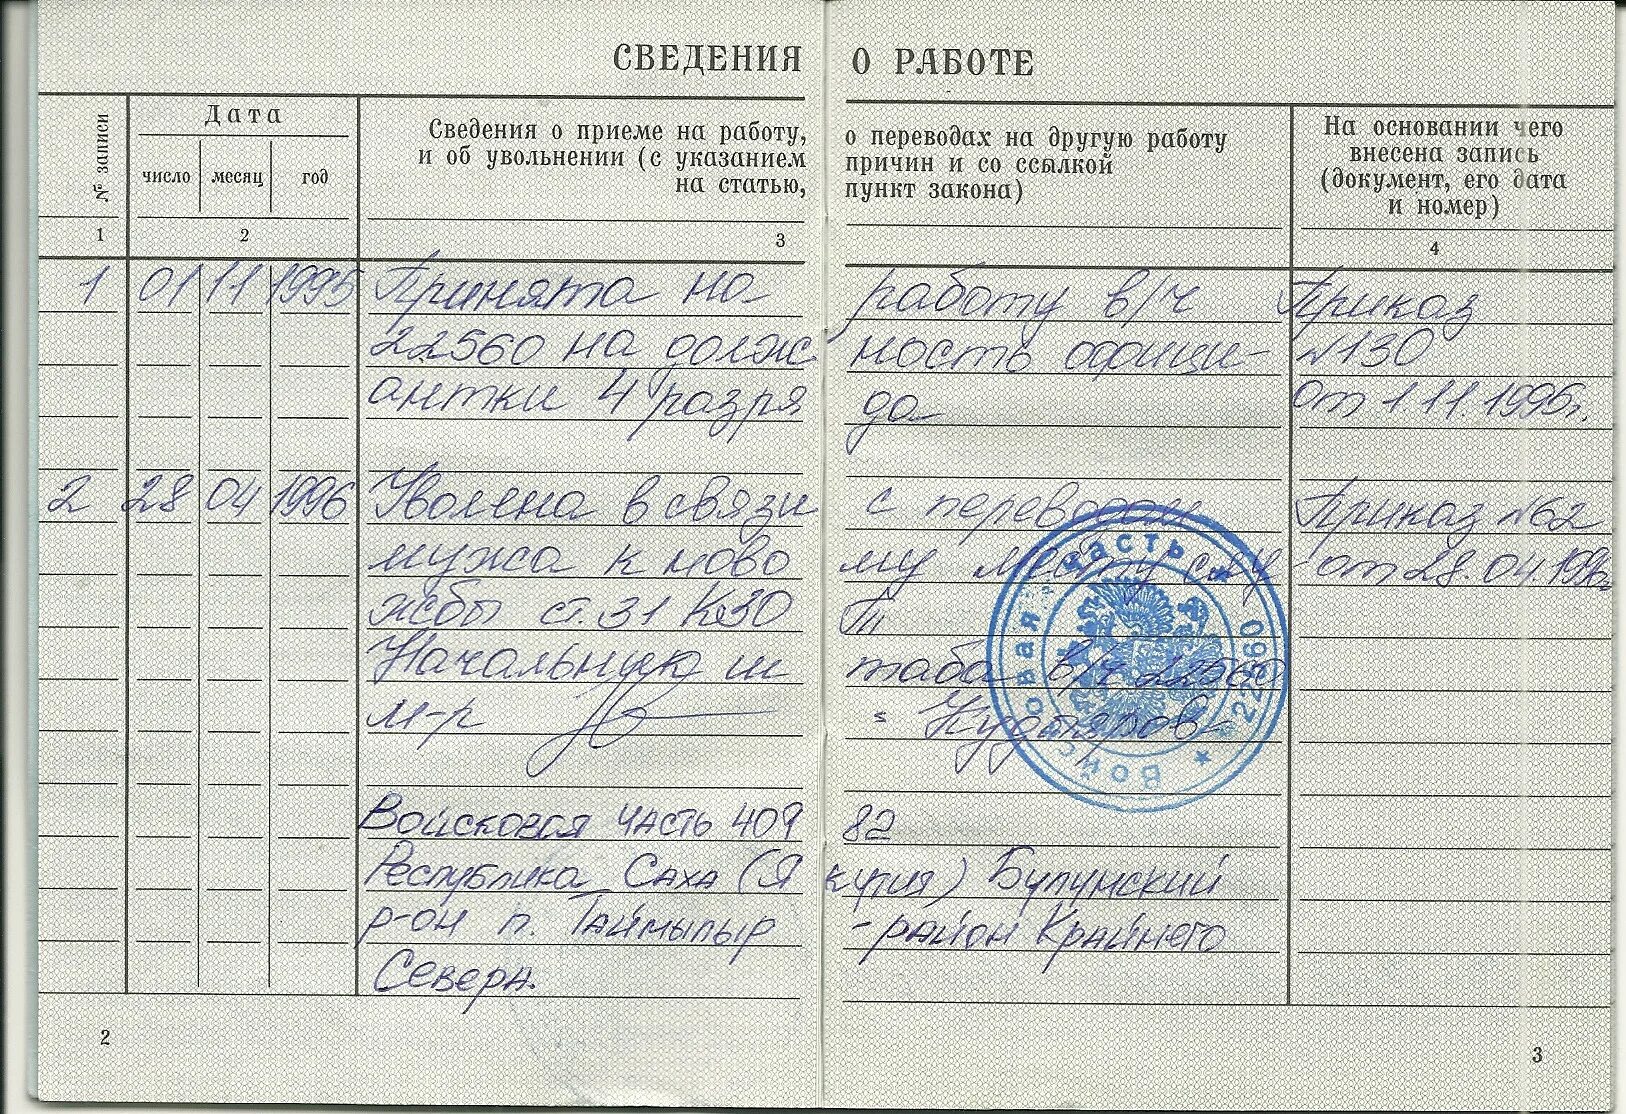 СВЕДЕНИЯ О РАБОТЕ
№ записи
Дата
число месяц год
Сведения о приеме на работу, о переводах на другую работу
и об увольнении (с указанием причин и со ссылкой
на статью, пункт закона)
На основании чего
внесена запись
(документ, его дата
и номер)
1 2 3 4
1 01 11 1995 Принята на работу в/ч Приказ
22560 на должность официантки №130
антки 4 разряда от 1.11.1995г.
2 28 04 1996 Уволена в связи с переводом Приказ №62
мужа к новому месту слу от 28.04.1996г.
жбы ст.31 КЗО Т
Начальник штаба в/ч 22560
м-р Кудояров
Войсковая часть * 22560 *
Войсковая часть 40982
Республика Саха (Якутия) Булунский
р-он п. Таймылыр - район Крайнего
Севера.
2 3